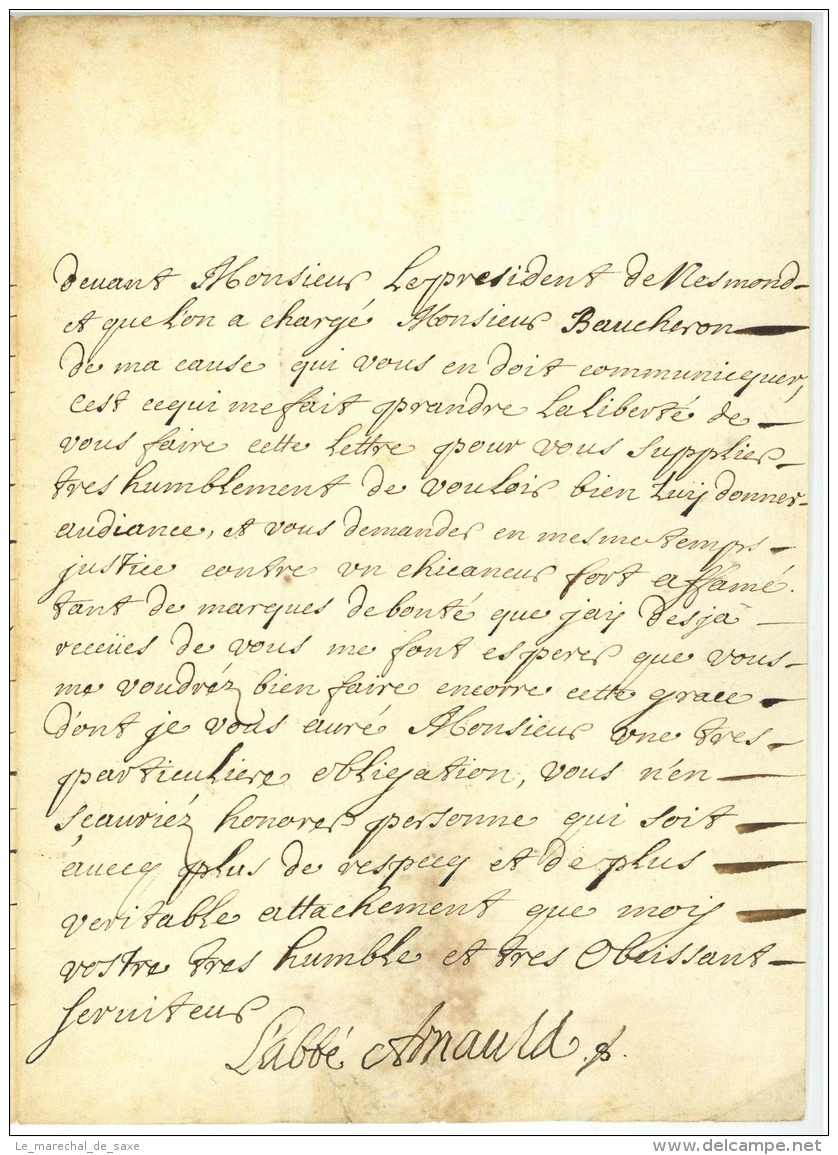 devant Monsieur Le president de Nesmond
et que l'on a chargé Monsieur Baucheron
de ma cause qui vous en doit communicquer,
cest cequi me fait prandre La liberté de
vous faire cette Lettre pour vous supplier
tres humblement de vouloir bien Luy donner
audiance, et vous demander en mesme temps
justice contre vn chicaneur fort affamé.
tant de marques de bonté que jay desja
receües de vous me font esperer que vous
me voudréz bien faire encorre cette grace
d'ont je vous auré Monsieur vne tres
particuliere obligation, vous n'en
sçauriéz honorer personne qui soit
auecq plus de respecq et de plus
veritable attachement que moy
vostre tres humble et tres Obeissant
seruiteur
L'abbé Arnauld
Le_marechal_de_saxe
www.delcampe.net